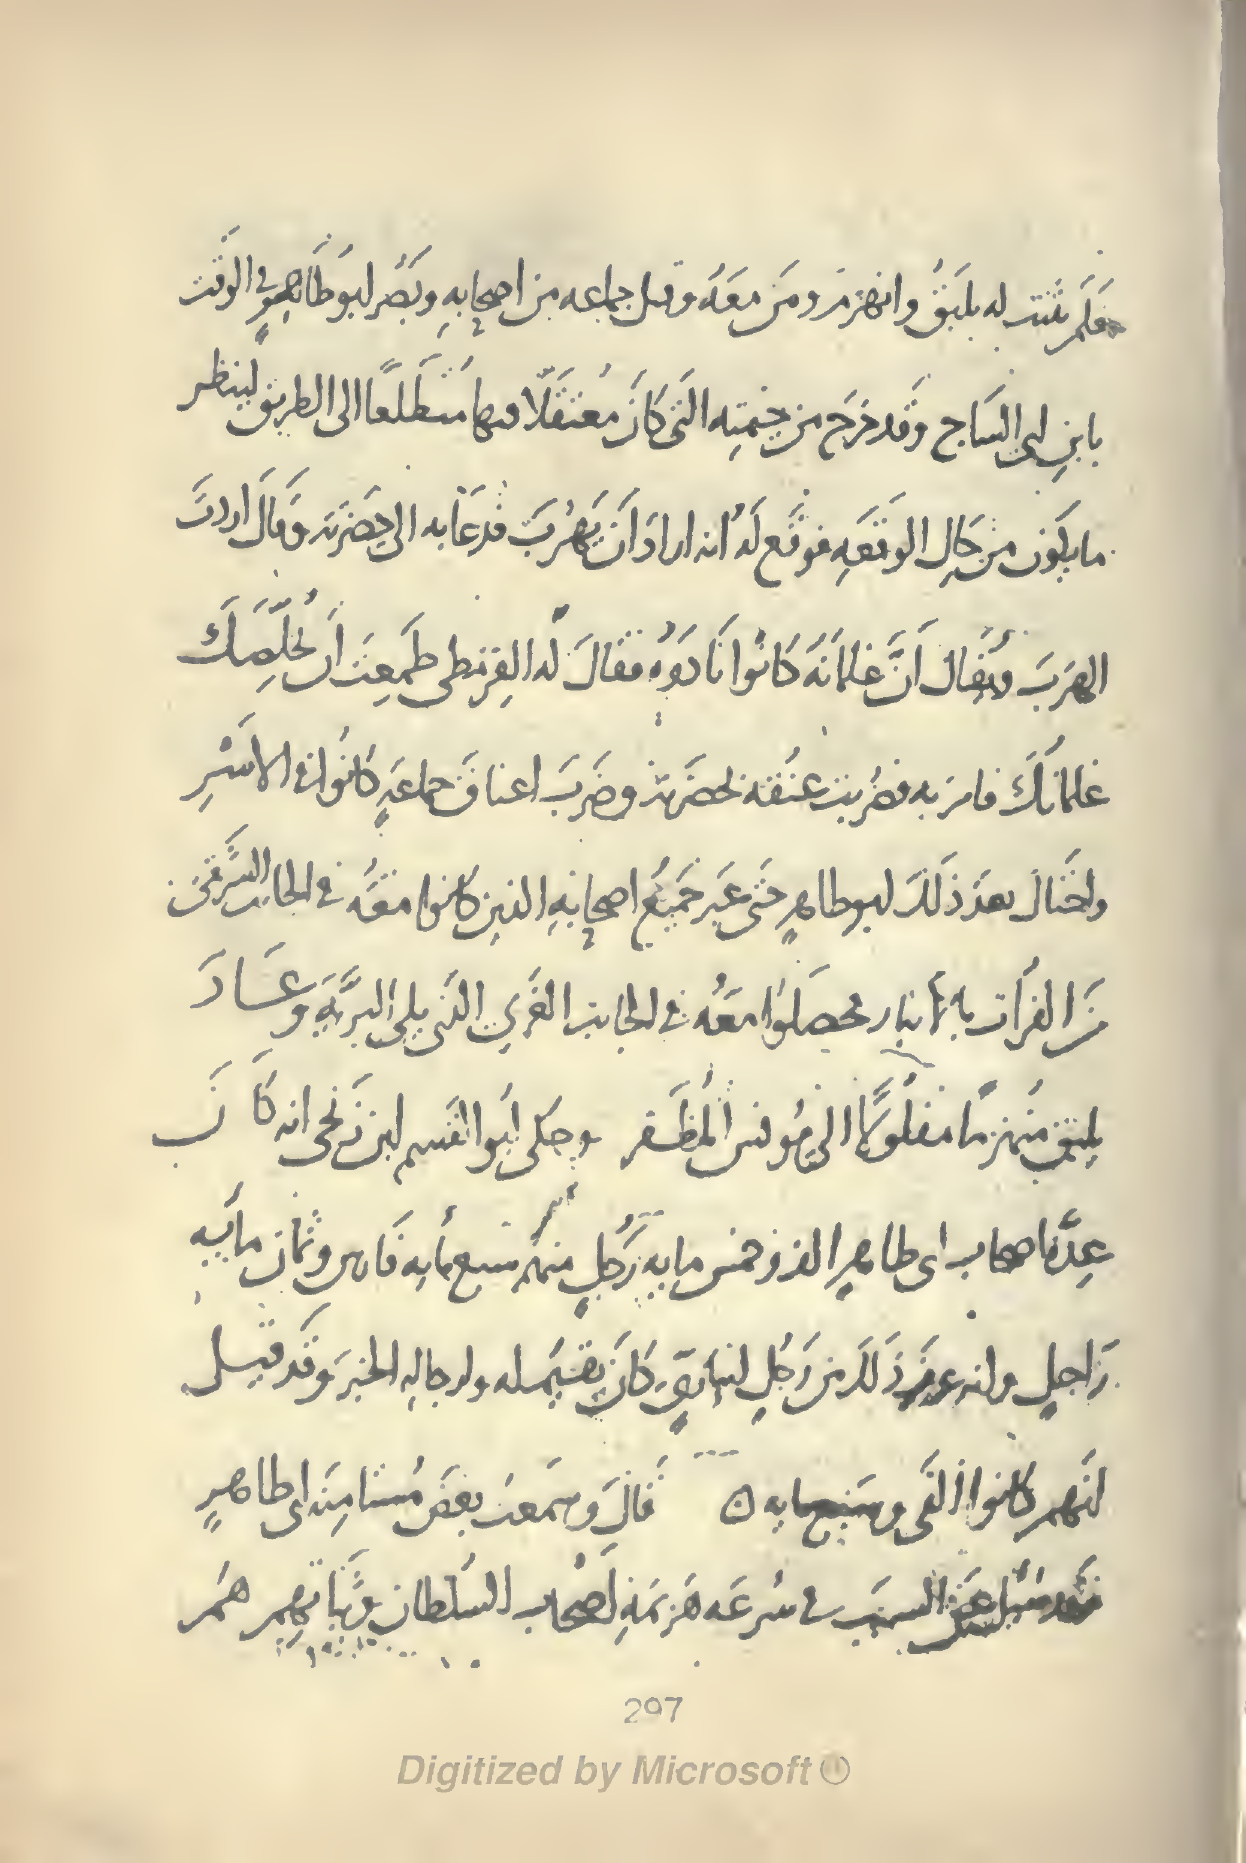 فلم يثبت له يلبق وانهزم ومن معه وقتل جماعه من اصحابه وبصر ابو طاهر في الوقت
بابن ابي الساج وقد خرج من خيمته التي كان معتقلا فيها متطلعا الى الطريق لينظر
ما يكون من حال الوقعه فوقع له انه اراد ان يهرب فدعا به الى حضرته وقال اردت
الهرب ويقال ان غلمانه كانوا نادوه فقال له القرمطي طمعت ان يخلصك
غلمانك فامر به فضربت عنقه بحضرته وضرب اعناق جماعه كانوا في الاسر
واحتال بعد ذلك ابو طاهر حتى عبر جميع اصحابه الذين كانوا معه في الجانب الشرقي
من الفرات بالانبار فحصلوا معه في الجانب الغربي الذي يلي البريه وعاد
يلبق منهزما مفلولا الى مونس المظفر وحكى ابو القسم ابن زنجي انه كان
عده اصحاب ابي طاهر الف وخمس مايه رجل منهم سبع مايه فارس وثمان مايه
راجل وانه عرف ذلك من رجل انباري كان يقيم له ولرجاله الخبز وقد قيل
انهم كانوا الفى وسبع مايه قال وسمعت بعض مستامنه ابي طاهر
السبب في سرعه هزيمه اصحاب السلطان وثباتهم هم
297
Digitized by Microsoft ®